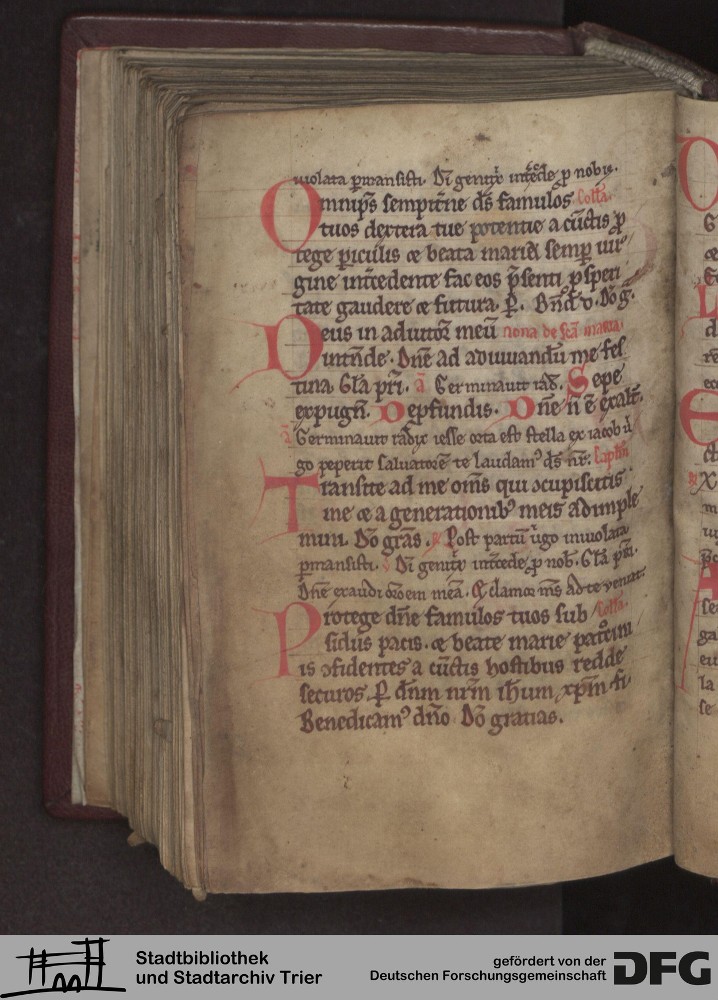 uiolata ꝑmansisti. Dī genitͥx int̄cede ꝓ nobis.
Omnip̄s sempit̄ne ds̄ famulos Coll̄a.
tuos dextera tue potentie a cūctis ꝓ
tege ꝑiculis ⁊ beata maria semꝑ uir
gine int̄cedente fac eos p̄senti ꝓsperi
tate gaudere ⁊ futura. P̱. Bn̄d̄. v. Dō g̊.
Deus in adiutoꝝ meū nona de sc̄a maria.
intn̄de. Dn̄e ad adiuuandū me fes
tina Gl̄a pr̄i. a᷒ Germinauit rad̄. Sepe
expugn̄. Depfundis. Dn̄e n̄ ē exalt̄.
a᷒ Germinauit radix iesse orta est stella ex iacob ū
go peperit saluatorē te laudamꝰ ds̄ nr̄. Capl̄m
Transite ad me om̄s qui ↄcupiscitis
me ⁊ a generationibꝰ meis adimple
mini. Dō gr̄as. ꝶ Post partū ūgo inuiolata
ꝑmansisti. v̄ Dī genitͥx int̄cede ꝓ nob̄. Gl̄a pr̄i.
Dn̄e exaudi or̄oem meā. Et clamor m̄s ad te veniat.
Protege dn̄e famulos tuos sub Coll̄a.
sidiis pacis. ⁊ beate marie pat̊cini
is ↄfidentes a cūctis hostibus redde
securos. P̱ dn̄m nr̄m ih̄um xp̄m fi.
Benedicamꝰ dn̄o Dō gratias.
Stadtbibliothek
und Stadtarchiv Trier
gefördert von der
Deutschen Forschungsgemeinschaft
DFG